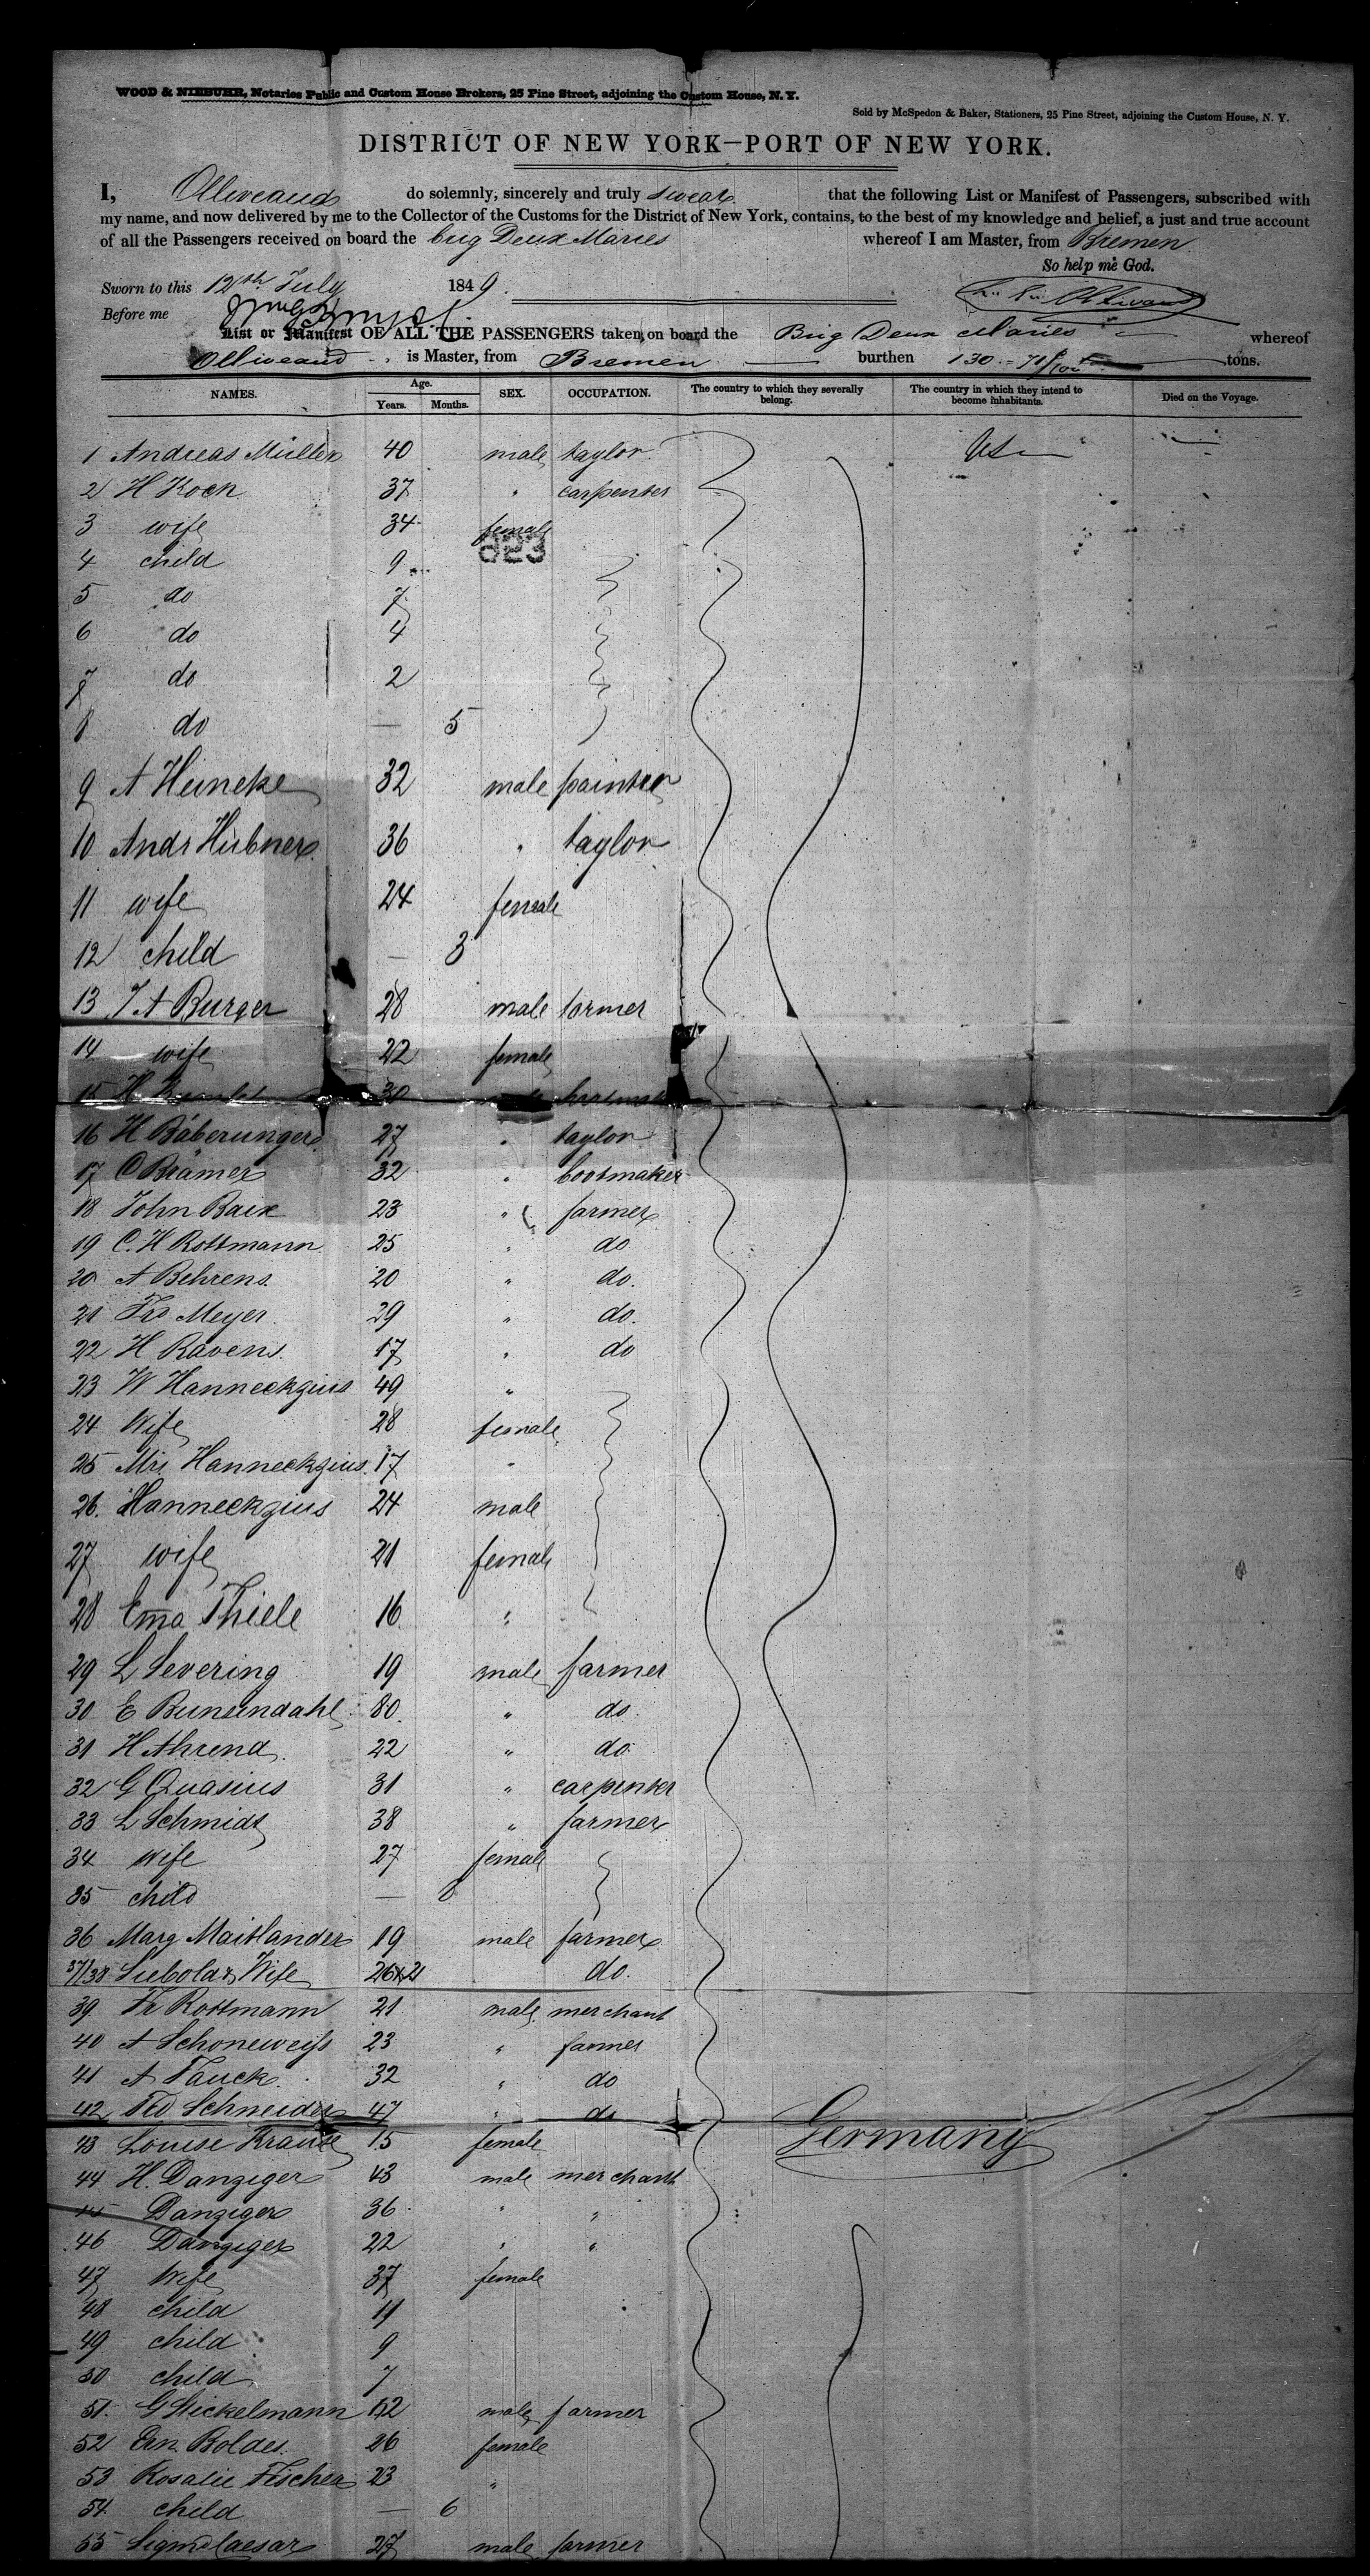 WOOD & NIEBUHR, Notaries Public and Custom House Brokers, 25 Pine Street, adjoining the Custom House, N. Y.
Sold by McSpedon & Baker, Stationers, 25 Pine Street, adjoining the Custom House, N. Y.
DISTRICT OF NEW YORK—PORT OF NEW YORK.
I, Olliveaud do solemnly, sincerely and truly swear that the following List or Manifest of Passengers, subscribed with
my name, and now delivered by me to the Collector of the Customs for the District of New York, contains, to the best of my knowledge and belief, a just and true account
of all the Passengers received on board the brig Deux Maries whereof I am Master, from Bremen
So help me God.
Sworn to this 12th July 1849.
Before me
List or Manifest OF ALL THE PASSENGERS taken on board the Brig Deux Maries whereof
Olliveaud is Master, from Bremen burthen 130 tons.
NAMES. Age. Years. Months. SEX. OCCUPATION. The country to which they severally belong. The country in which they intend to become inhabitants. Died on the Voyage.
1 Andreas Müller 40 male taylor
2 H Koch 37 " carpenter
3 wife 34 female
823
4 child 9
5 do 7
6 do 4
7 do 2
8 do — 5
9 A Heineke 32 male painter
10 Andr Hübner 36 " taylor
11 wife 24 female
12 child — 3
13 J A Burger 28 male former
14 wife 22 female
15 H 30
16 H Baberunger 27 " taylor
17 C Brämer 32 " bootmaker
18 John Baix 23 " farmer
19 C. H Rottmann 25 " do
20 A Behrens 20 " do.
21 Frd Meyer 29 " do.
22 H Ravens 17 " do
23 W Hanneckgius 49 "
24 Wife 28 female
25 Mrs. Hanneckgius 17 "
26. Hanneckgius 24 male
27 wife 21 female
28 Ema Thiele 16 "
29 L Severing 19 male farmer
30 E Bunsendahl 80 " do
31 H Ahrend 22 " do
32 G Quasius 31 " carpenter
33 L Schmidt 38 " farmer
34 wife 27 female
35 child —
36 Marg Maitlander 19 male farmer
37/38 Liebold & Wife 26 & 21 do.
39 Fr Rottmann 21 male merchant
40 A Schoneweiss 23 " farmer
41 A Tauck 32 " do
42 Frd Schneider 47 " do
Germany
43 Louise Krause 15 female
44 H. Danziger 43 male merchant
45 Danziger 36 " "
46 Danziger 22 " "
47 Wife 37 female
48 child 11
49 child 9
50 child 7
51. G Stickelmann 42 male farmer
52 Ern. Boldes 26 female
53 Rosalie Fischer 23 "
54 child — 6
55 Sigmd Caesar 27 male farmer